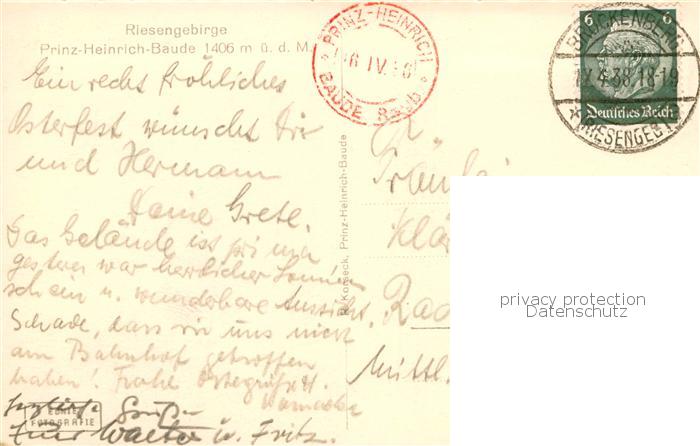 Riesengebirge
Prinz-Heinrich-Baude 1406 m ü. d. M.
Ein recht fröhliches
Osterfest wünscht Dir
und Hermann
Deine Grete.
Das Gelände ist prima
gestern war herrlicher Sonnen
schein u. wunderbare Aussicht.
Schade, dass wir uns nicht
am Bahnhof getroffen
haben! Frohe Ostergrüße
Herzliche Grüße
Walter u. Fritz.
ECHTE
FOTOGRAFIE
R. Korseck, Prinz-Heinrich-Baude
PRINZ-HEINRICH
BAUDE
16 IV.
6 6
Deutsches Reich
BRÜCKENBERG
4.38.18-19
(RIESENGEB)
Fräulein
Klär
Rad
Mittl.
privacy protection
Datenschutz